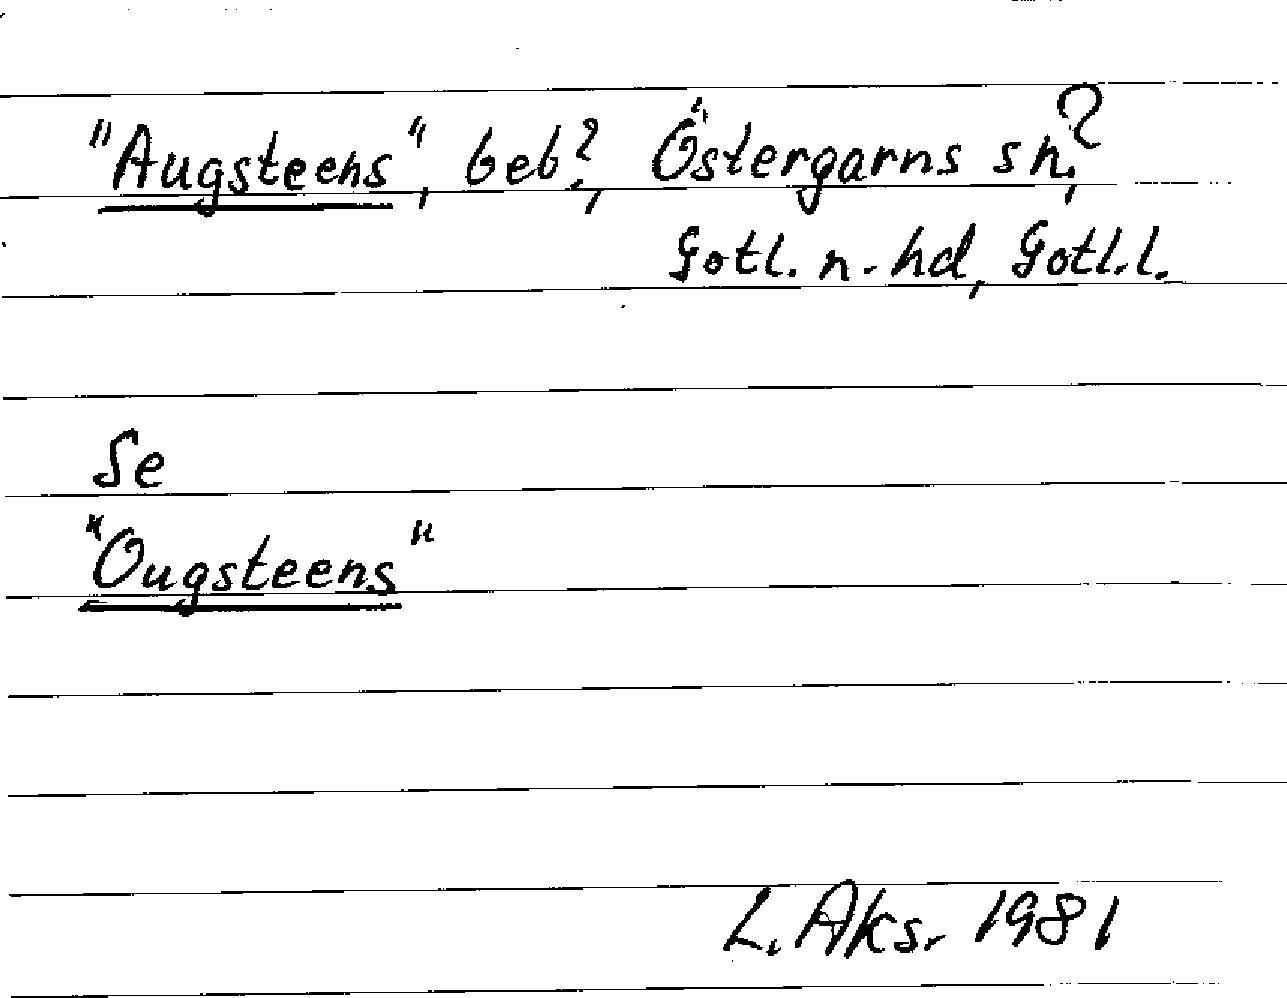 "Augsteens", beb?, Östergarns sn?,
Gotl. n. hd, Gotl. l.
Se
"Ougsteens"
L. Aks. 1981